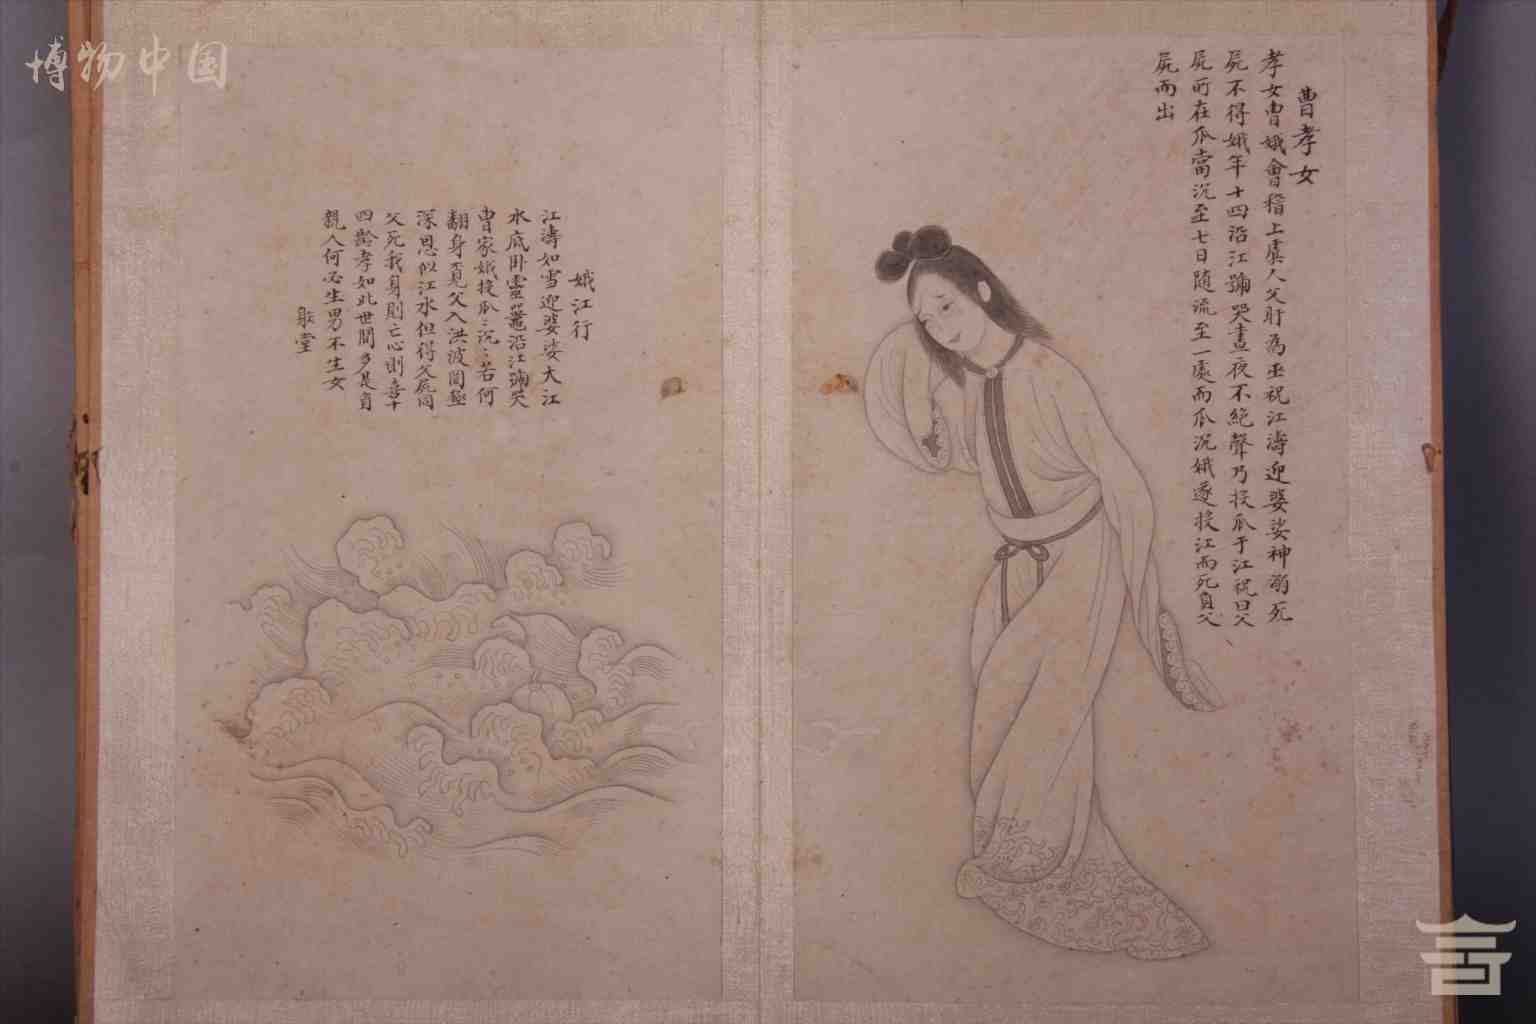 博物中国
曹孝女
孝女曹娥會稽上虞人父盱為巫祝江濤迎婆娑神溺死
屍不得娥年十四沿江號哭晝夜不絕聲乃投瓜于江祝曰父
屍所在瓜當沉至七日随流至一處而瓜沉娥遂投江而死負父
屍而出
娥江行
江濤如雪迎婆娑大江
水底卧靈鼉沿江號哭
曹家娥投瓜瓜沉沉若何
翻身覓父入洪波罔極
深恩似江水但得父屍同
父死我身則亡心則喜十
四齡孝如此世間多是負
親人何必生男不生女